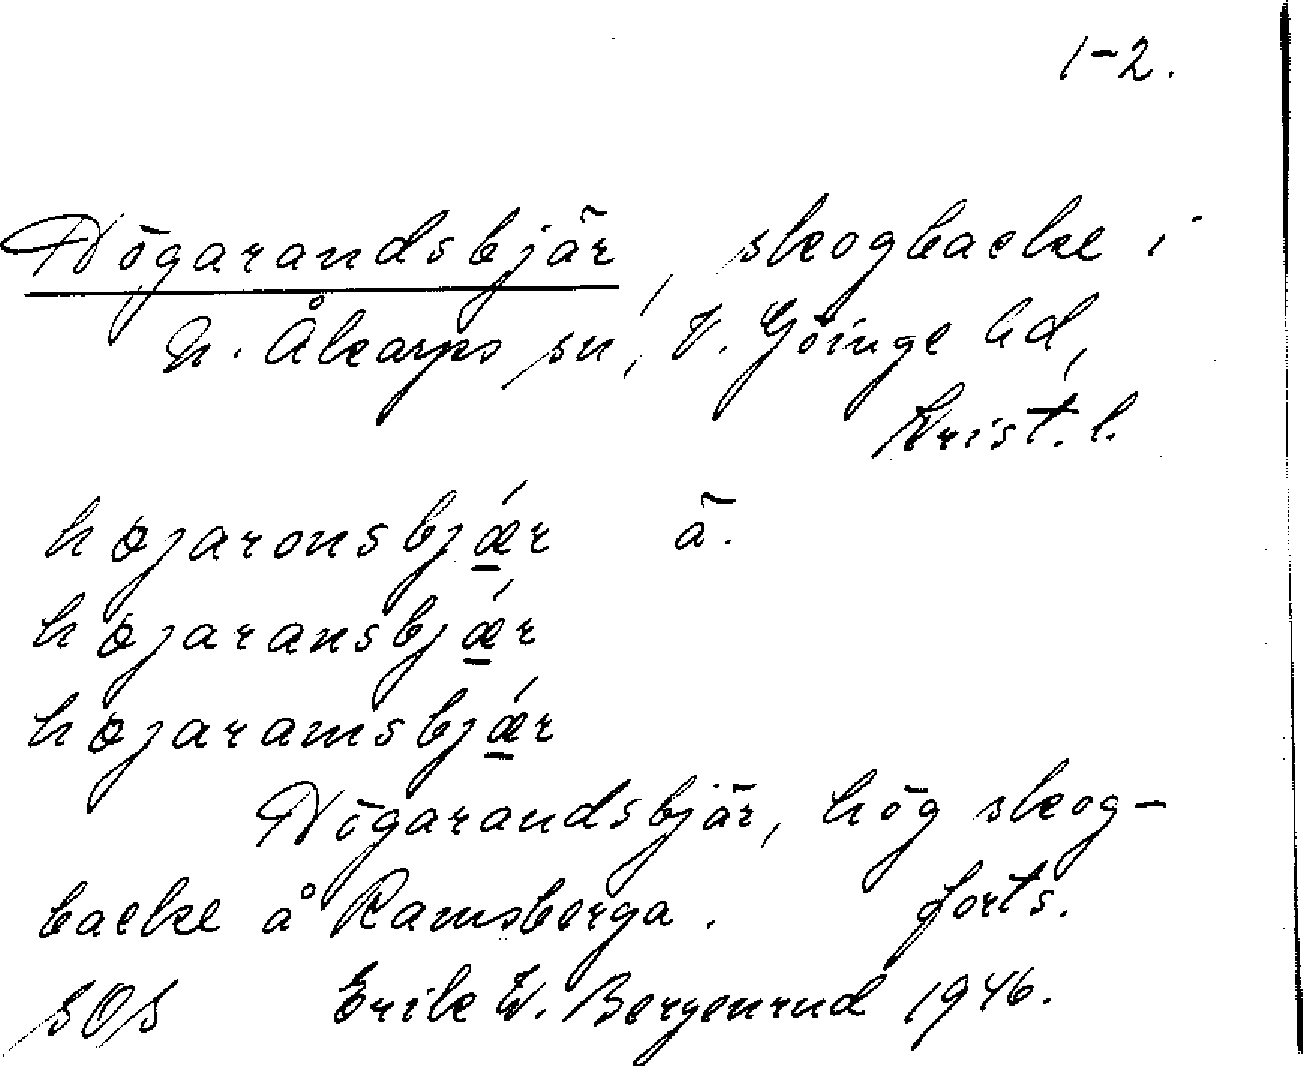 1-2.
Högarandsbjär, skogbacke i
N. Åkarps sn, V. Göinge hd,
Krist. l.
højaronsbjǽr ä.
højaransbjǽr
højaramsbjǽr
Högarandsbjär, hög skog-
backe å Ramsberga. forts.
SOS Erik W. Bergenrud 1946.